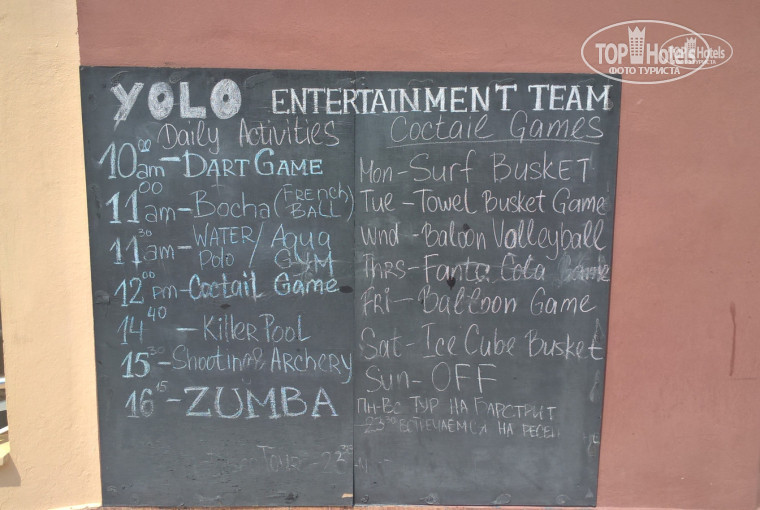 TOPHotels
ФОТО ТУРИСТА
TOPHotels
ФОТО ТУРИСТА
YOLO ENTERTAINMENT TEAM
Daily Activities
10 00 am - DART GAME
11 00 am - Bocha (FRENCH BALL)
11 30 am - WATER Polo / Aqua GYM
12 00 pm - Coctail Game
14 40 - Killer Pool
15 30 - Shooting & ARCHERY
16 15 - ZUMBA
Tour - 23
Coctail Games
Mon - Surf BUSKET
Tue - Towel Busket Game
Wnd - Baloon Volleyball
Thrs - Fanta Cola Game
Fri - Balloon Game
Sat - Ice Cube Busket
Sun - OFF
ПН-Вс ТУР НА БАРСТРИТ
23 30 ВСТРЕЧАЕМСЯ НА РЕСЕП